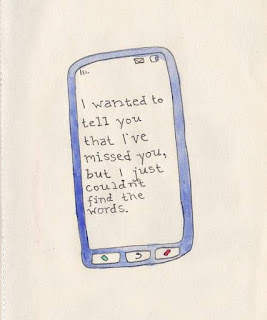 I wanted to
tell you
that I've
missed you,
but I just
couldn't
find the
words.